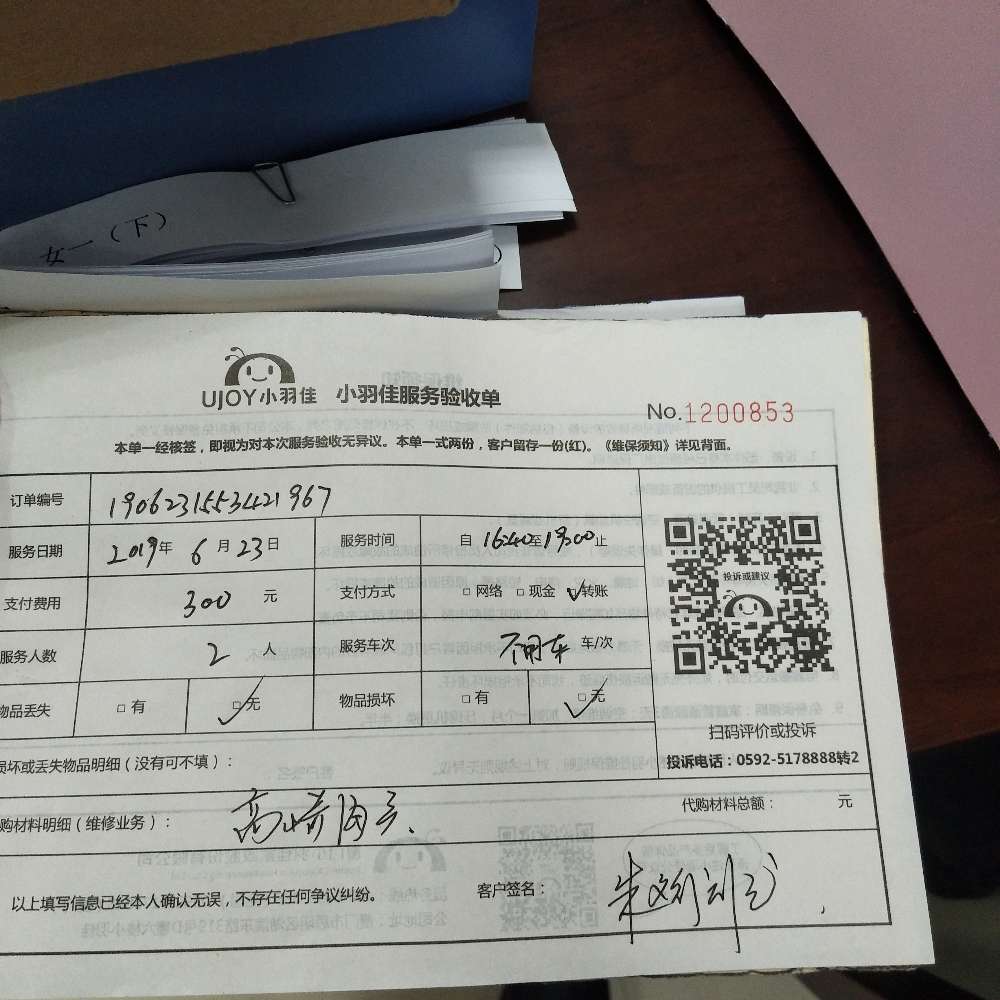 女一（下）
UJOY小羽佳 小羽佳服务验收单
No.1200853
本单一经核签，即视为对本次服务验收无异议。本单一式两份，客户留存一份(红)。《维保须知》详见背面。
订单编号 1906231553421967
服务日期 2019年 6月23日 服务时间 自 16:40至19:00止
支付费用 300 元 支付方式 □网络 □现金 ☑转账
服务人数 2 人 服务车次 不用车 车/次
物品丢失 □有 ☑无 物品损坏 □有 ☑无
投诉或建议
扫码评价或投诉
投诉电话：0592-5178888转2
损坏或丢失物品明细（没有可不填）：
购材料明细（维修业务）： 高崎海关 代购材料总额： 元
以上填写信息已经本人确认无误，不存在任何争议纠纷。 客户签名：